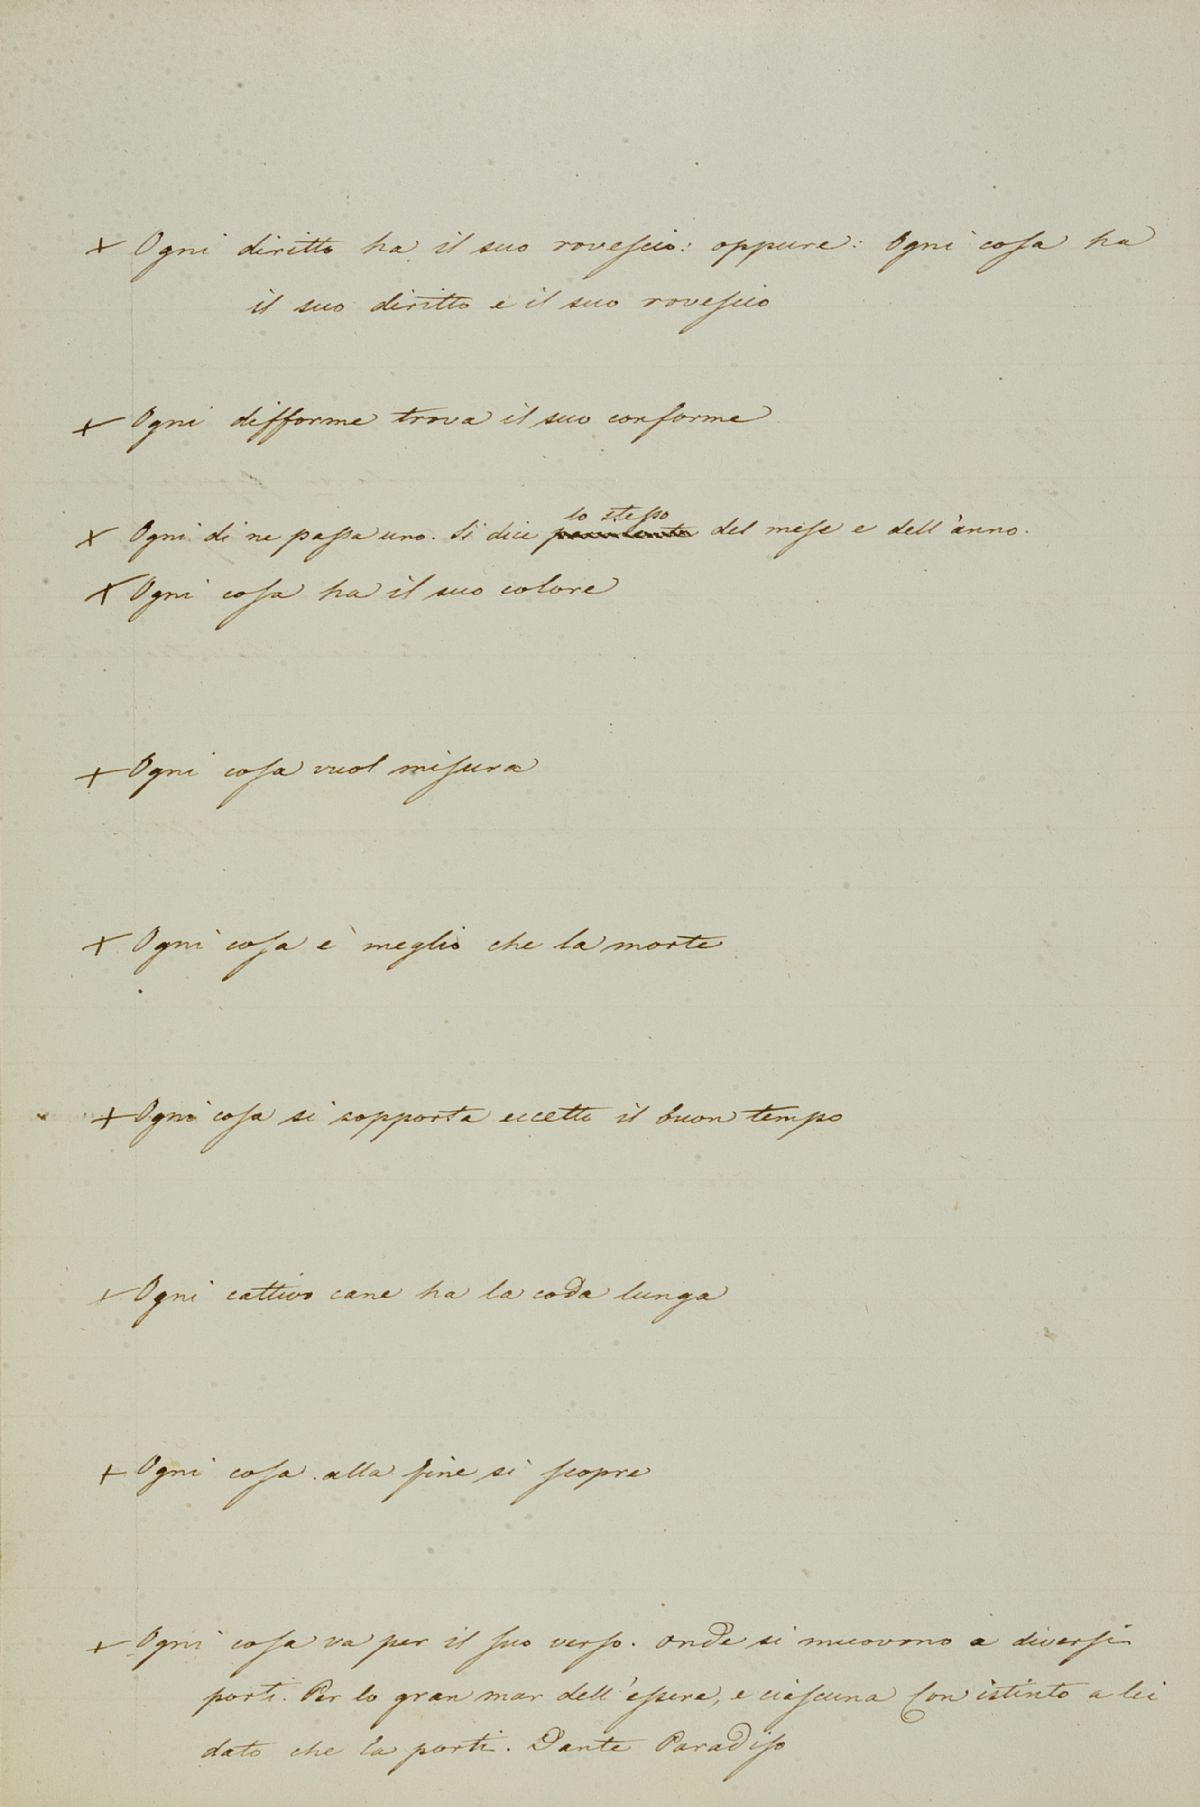 + Ogni diritto ha il suo rovescio: oppure: Ogni cosa ha
il suo diritto e il suo rovescio
+ Ogni difforme trova il suo conforme
lo stesso
+ Ogni di ne passa uno. Si dice del mese e dell'anno.
+ Ogni cosa ha il suo colore
+ Ogni cosa vuol misura
+ Ogni cosa è meglio che la morte
+ Ogni cosa si sopporta eccetto il buon tempo
+ Ogni cattivo cane ha la coda lunga
+ Ogni cosa alla fine si scopre
+ Ogni cosa va per il suo verso. onde si muovono a diversi
porti. Per lo gran mar dell'essere, e ciascuna Con istinto a lei
dato che la porti. Dante Paradiso